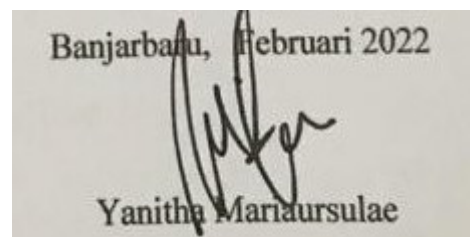 Banjarbaru, Februari 2022
Yanitha Mariaursulae